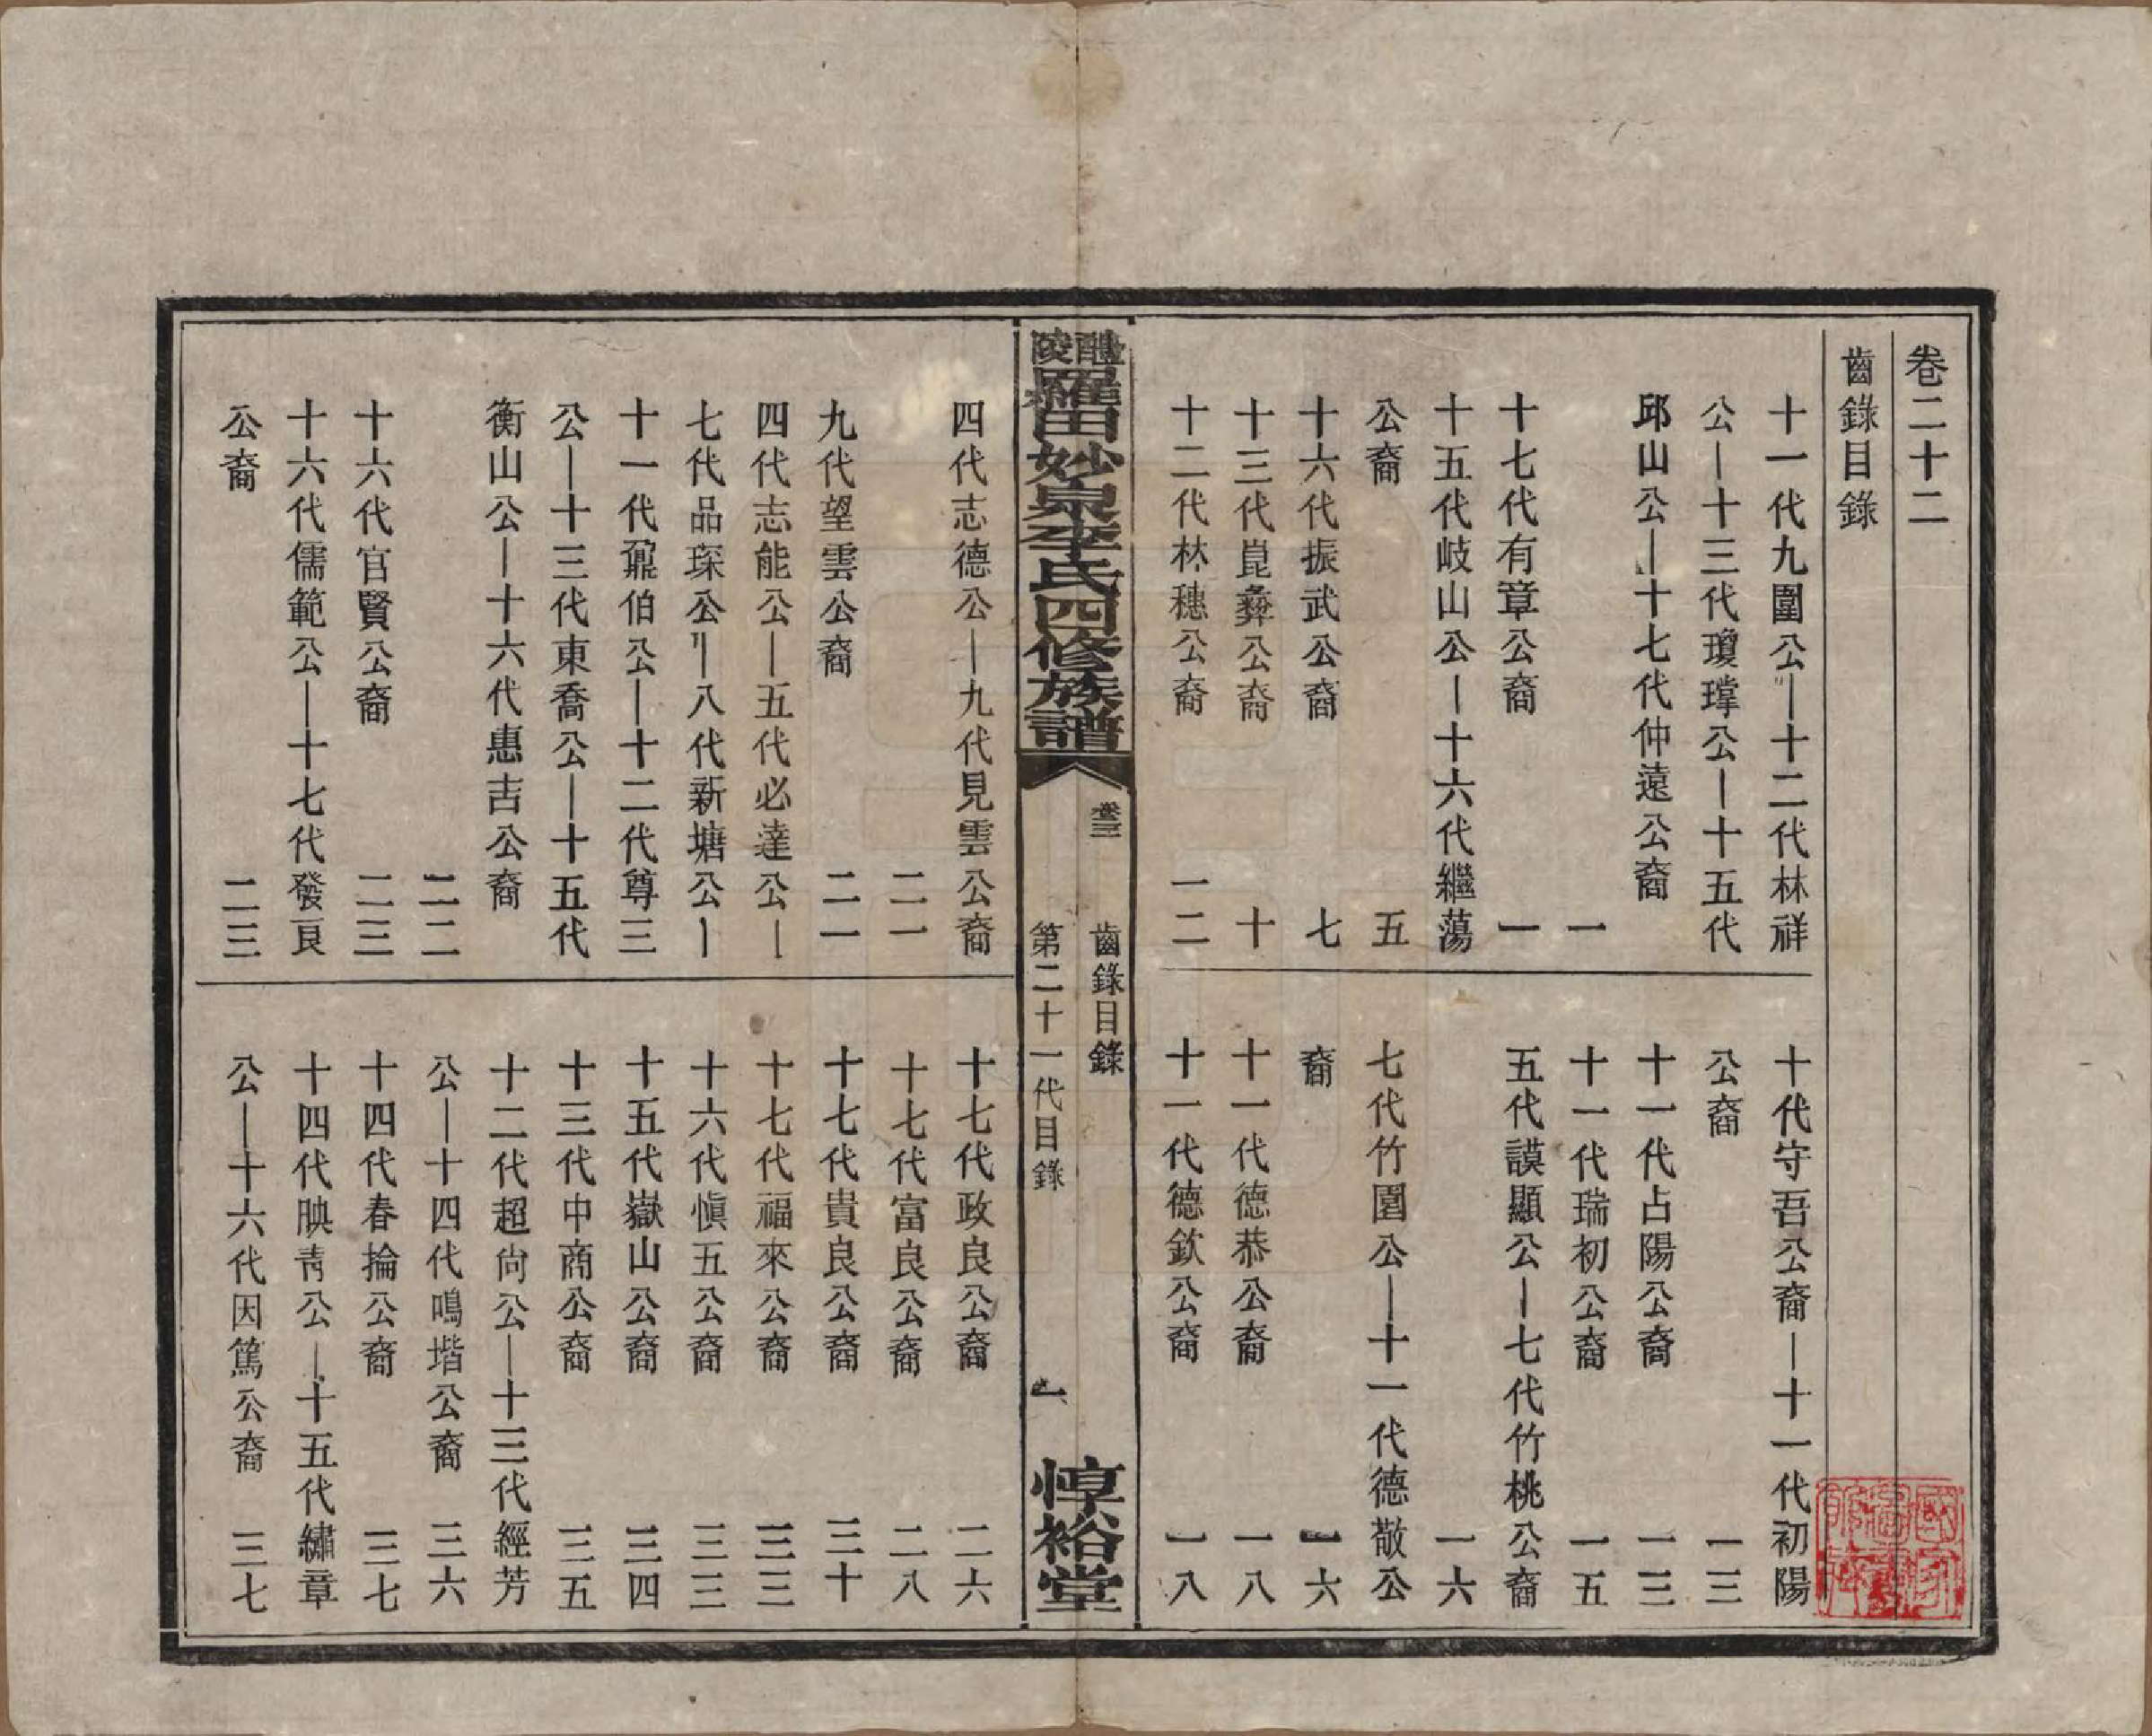 卷二十二
齒錄目錄
十一代九圍公—十二代林祥
公—十三代瓊璋公—十五代
邱山公—十七代仲遠公裔
一
十七代有章公裔 一
十五代岐山公—十六代繼蕩
公裔 五
十六代振武公裔 七
十三代崑彝公裔 十
十二代林穗公裔 一二
十代守吾公裔—十一代初陽
公裔 一三
十一代占陽公裔 一三
十一代瑞初公裔 一五
五代謨顯公—七代竹桃公裔
一六
七代竹園公—十一代德敬公
裔 一六
十一代德恭公裔 一八
十一代德欽公裔 一八
醴陵羅田妙泉李氏四修族譜
齒錄目錄
第二十一代目錄
一
惇裕堂
四代志德公—九代見雲公裔
二一
九代望雲公裔 二一
四代志能公—五代必達公—
七代品琛公—八代新塘公—
十一代鼐伯公—十二代尊三
公—十三代東喬公—十五代
衡山公—十六代惠吉公裔
二二
十六代官賢公裔 二三
十六代儒範公—十七代發良
公裔 二三
十七代政良公裔 二六
十七代富良公裔 二八
十七代貴良公裔 三十
十七代福來公裔 三三
十六代慎五公裔 三三
十五代嶽山公裔 三四
十三代中商公裔 三五
十二代超尚公—十三代經芳
公—十四代鳴堦公裔 三六
十四代春掄公裔 三七
十四代映青公—十五代繡章
公—十六代因篤公裔 三七